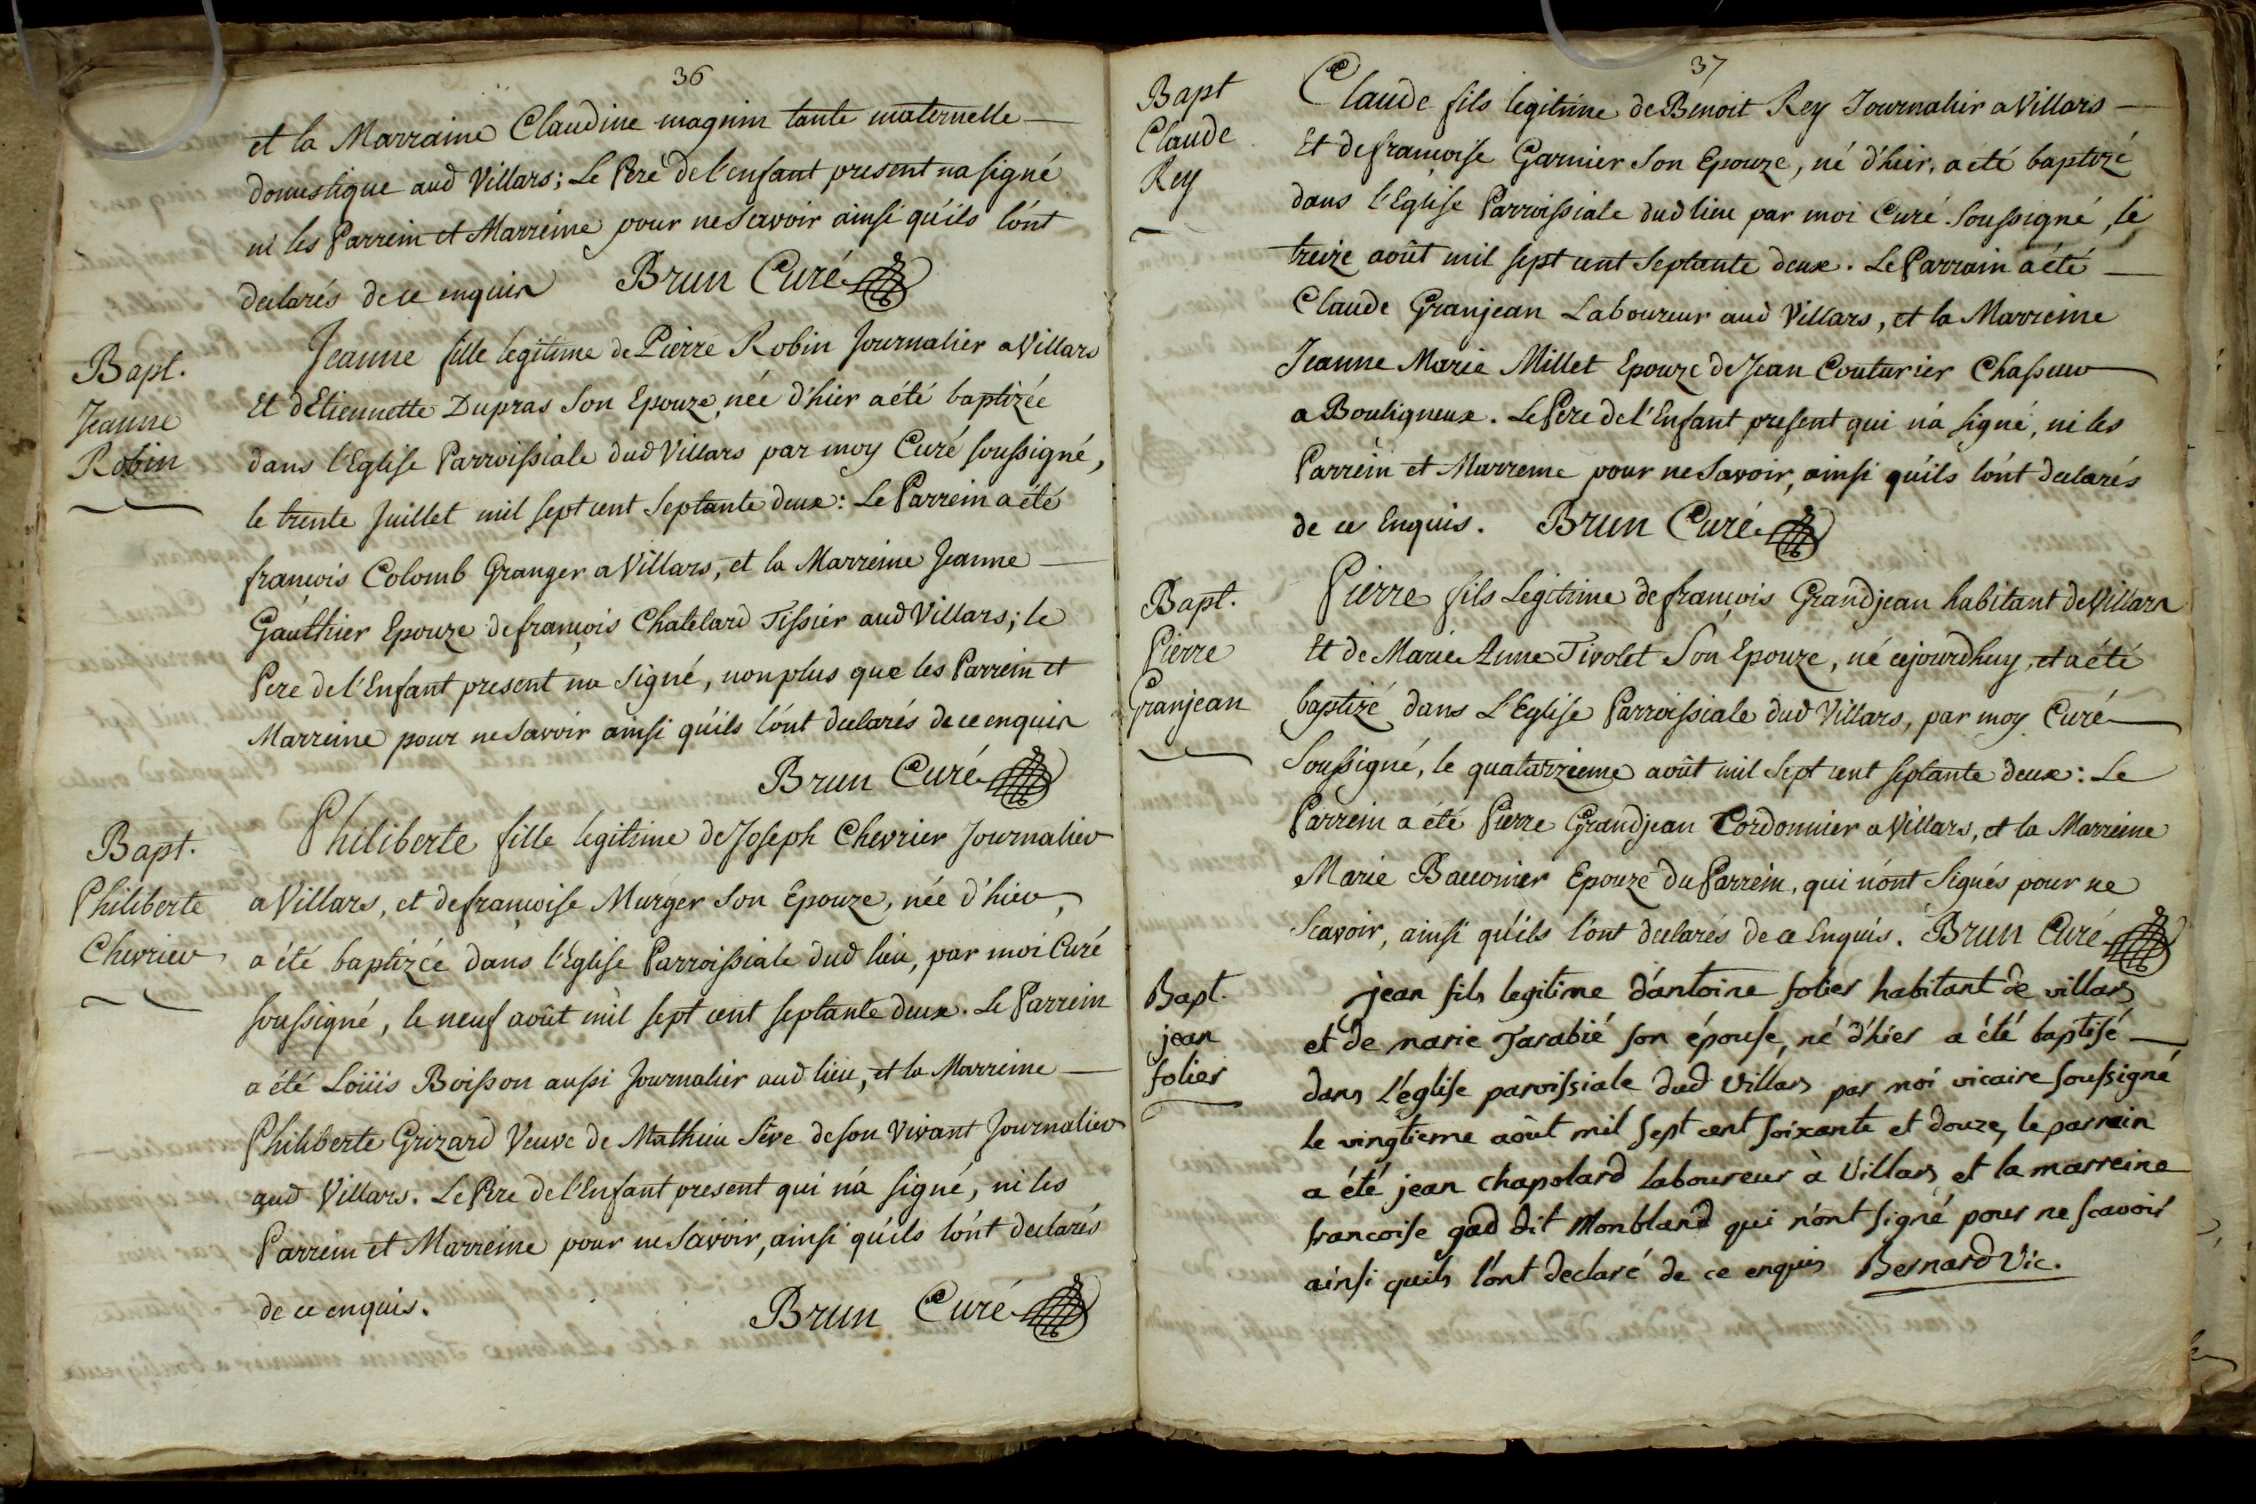 36
et la Marraine Claudine magnin tante maternelle
domestique aud Villars; Le Pere de l'enfant present na signé
ni les Parrein et Marreine pour ne savoir ainsi qu'ils l'ont
declarés de ce enquis Brun Curé
Bapt.
Jeanne
Robin
Jeanne fille legitime de Pierre Robin Journalier a Villars
Et d'Etiennette Dupras son Epouze, née d'hier a été baptizée
dans l'Eglise Parroissiale dud Villars par moy Curé soussigné,
le trente Juillet mil sept cent septante deux: Le Parrein a été
françois Colomb Granger a Villars, et la Marreine Jeanne
Gauthier Epouze de françois Chatelard Tissier aud Villars; le
Pere de l'Enfant present na signé, non plus que les Parrein et
Marreine pour ne savoir ainsi qu'ils l'ont declarés de ce enquis
Brun Curé
Bapt.
Philiberte
Chevrier
Philiberte fille legitime de Joseph Chevrier Journalier
a Villars, et de françoise Murger son Epouze, née d'hier,
a été baptizée dans l'Eglise Parroissiale dud lieu, par moi Curé
soussigné, le neuf août mil sept cent septante deux. Le Parrein
a été Loüis Boisson aussi Journalier aud lieu, et la Marreine
Philiberte Grizard Veuve de Mathieu Sêve de son Vivant Journalier
aud Villars. Le Pere de l'Enfant present qui n'a signé, ni les
Parrein et Marreine pour ne savoir, ainsi qu'ils l'ont declarés
de ce enquis. Brun Curé
37
Bapt
Claude
Rey
Claude fils legitime de Benoit Rey Journalier a Villars
Et de françoise Garnier son Epouze, né d'hier, a été baptizé
dans l'Eglise Parroissiale dud lieu par moi Curé soussigné, le
treize août mil sept cent septante deux. Le Parrain a été
Claude Granjean Laboureur aud Villars, et la Marreine
Jeanne Marie Millet Epouze de Jean Couturier Chasseur
a Bouligneux. Le Pere de l'Enfant present qui n'a signé, ni les
Parrein et Marreine pour ne savoir, ainsi qu'ils l'ont declarés
de ce Enquis. Brun Curé
Bapt.
Pierre
Granjean
Pierre fils Legitime de françois Grandjean habitant de Villars
Et de Marie Anne Tivolet son Epouze, né cejourdhuy, et a été
baptizé dans L'Eglise Parroissiale dud Villars, par moy Curé
Soussigné, le quatorzieme août mil sept cent septante deux: Le
Parrein a été Pierre Grandjean Cordonnier a Villars, et la Marreine
Marie Bauconier Epouze du Parrein, qui n'ont signés pour ne
Scavoir, ainsi qu'ils l'ont declarés de ce Enquis. Brun Curé
Bapt.
jean
folier
jean fils legitime d'antoine folier habitant de villars
et de marie Tarabié son épouse, né d'hier a été baptisé
dans l'église paroissiale dud Villars par moi vicaire soussigné
le vingtieme août mil sept cent soixante et douze, le parrain
a été jean chapolard laboureur à Villars et la marreine
francoise gad dit Monbland qui n'ont signé pour ne scavoir
ainsi quils l'ont declaré de ce enquis Bernard Vic.